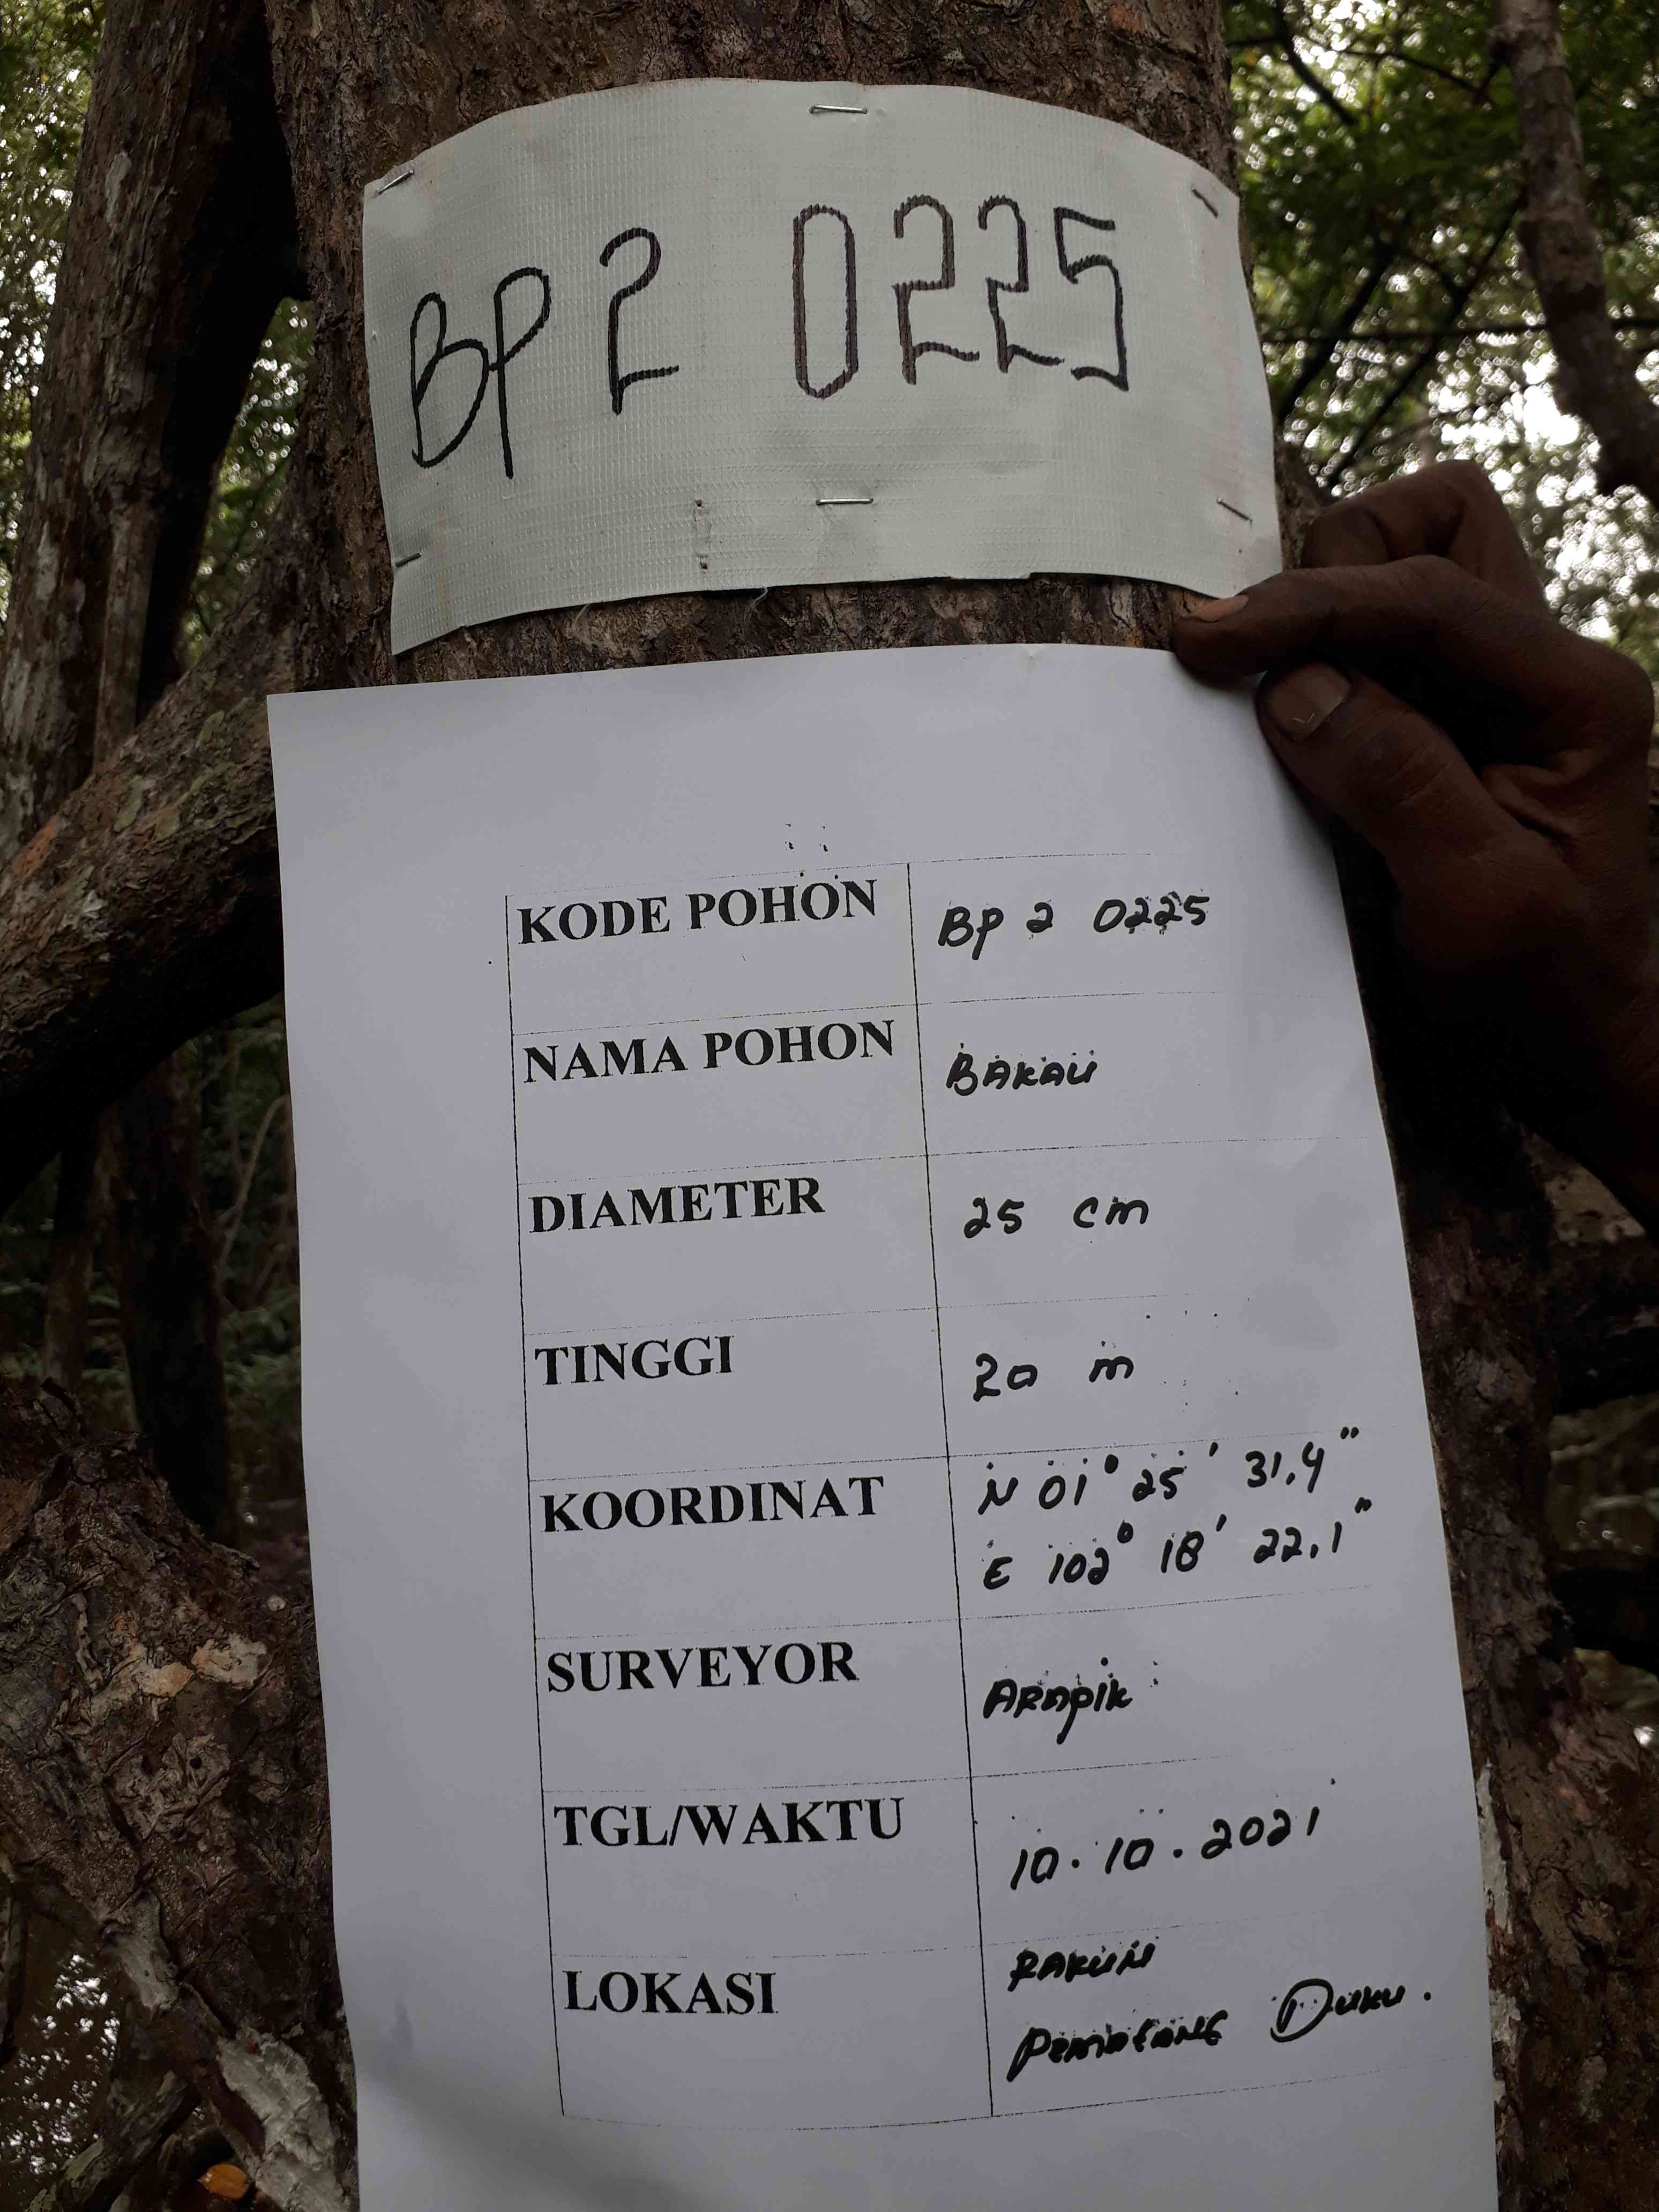 BP 2 0225
KODE POHON BP 2 0225
NAMA POHON BAKAU
DIAMETER 25 cm
TINGGI 20 m
KOORDINAT N 01° 25' 31,4"
E 102° 18' 22,1"
SURVEYOR ARAPIK
TGL/WAKTU 10.10.2021
LOKASI
PEMATANG DUKU.